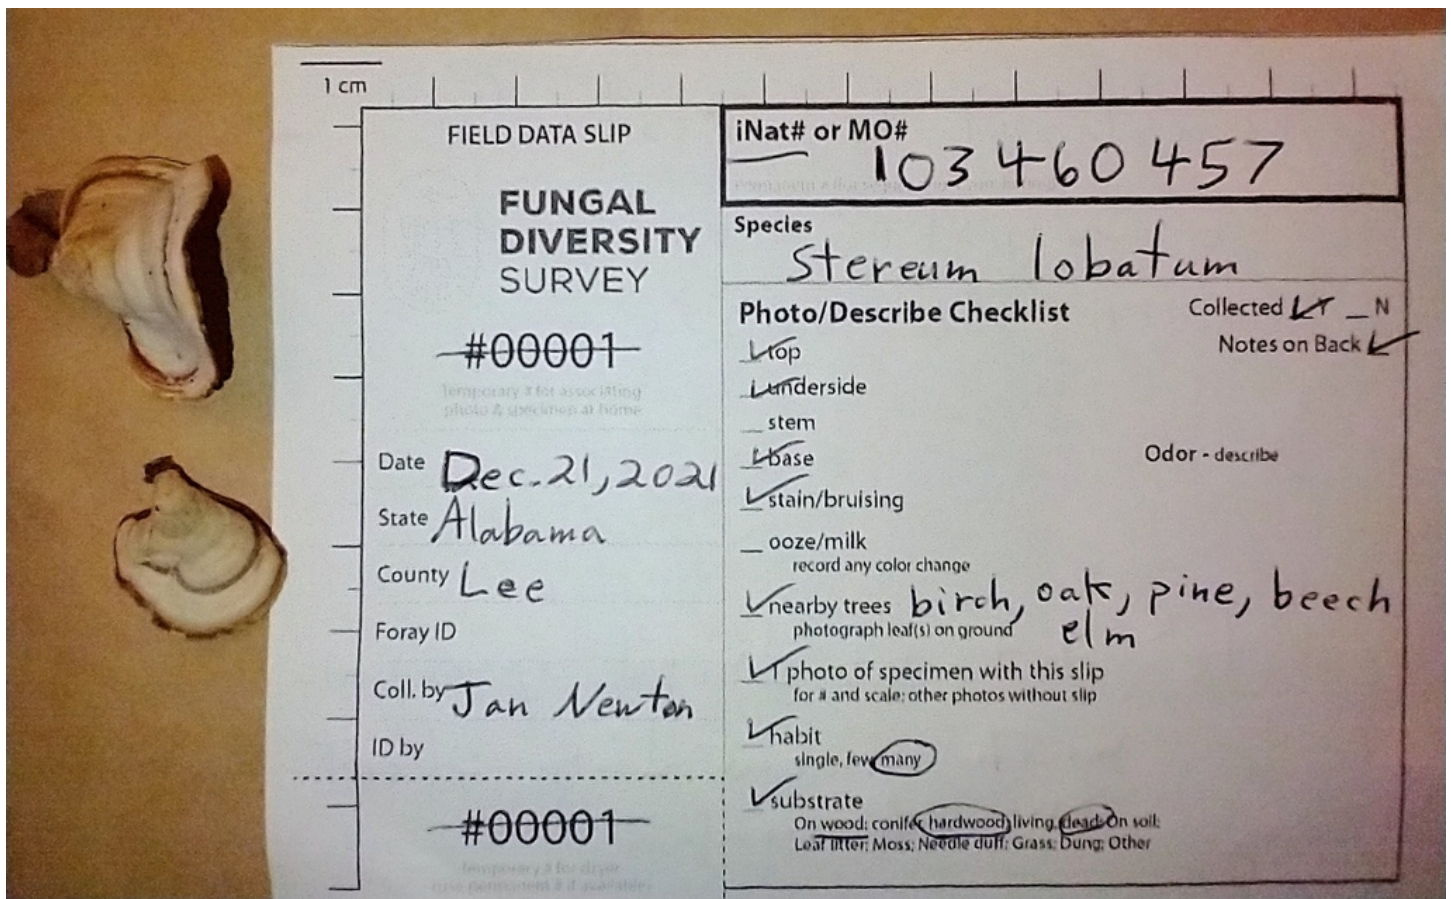 1 cm
FIELD DATA SLIP
FUNGAL
DIVERSITY
SURVEY
#00001
Temporary # for associating
photo & specimen at home
Date Dec. 21, 2021
State Alabama
County Lee
Foray ID
Coll. by Jan Newton
ID by
#00001
Temporary # for dryer
(use permanent # if available)
iNat# or MO#
103460457
Species
Stereum lobatum
Photo/Describe Checklist
Collected Y _ N
Notes on Back
top
underside
_ stem
base
Odor - describe
stain/bruising
_ ooze/milk
record any color change
nearby trees birch, oak, pine, beech
photograph leaf(s) on ground elm
photo of specimen with this slip
for # and scale; other photos without slip
habit
single, few, many
substrate
On wood: conifer, hardwood, living, dead; On soil;
Leaf litter; Moss; Needle duff; Grass; Dung; Other